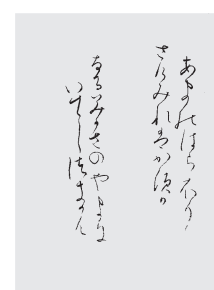 あまのはら ふり
さけみれはかすか
なるみかさの やまに
いてしつきかも